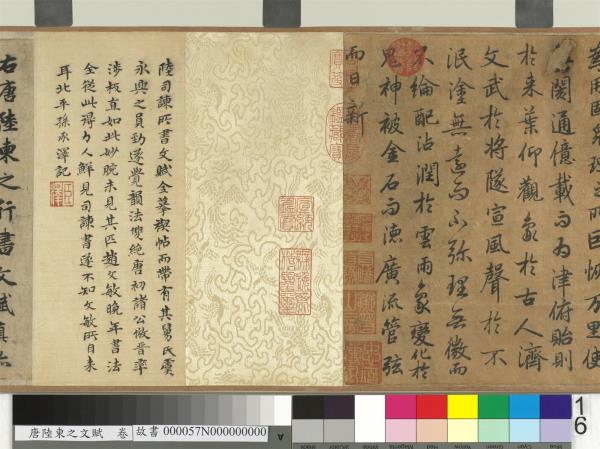 用固衆理之所因恢万里使
閡通億載而為津俯貽則
於来葉仰觀象於古人濟
文武於将隊宣風聲於不
泯塗無遠而不弥理無微而
不綸配沾潤於雲雨象變化於
鬼神被金石而德廣流管弦
而日新
陸司諫所書文賦全摹禊帖而帶有其舅氏虞
永興之員勁遂覺韻法雙絶唐初諸公倣晉率
涉板直如此妙腕未見其匹趙文敏晚年書法
全從此得力人鮮見司諫書遂不知文敏所自来
耳北平孫承澤記
右唐陸柬之行書文賦真
唐陸柬之文賦 卷
故書 000057N000000000
A
16